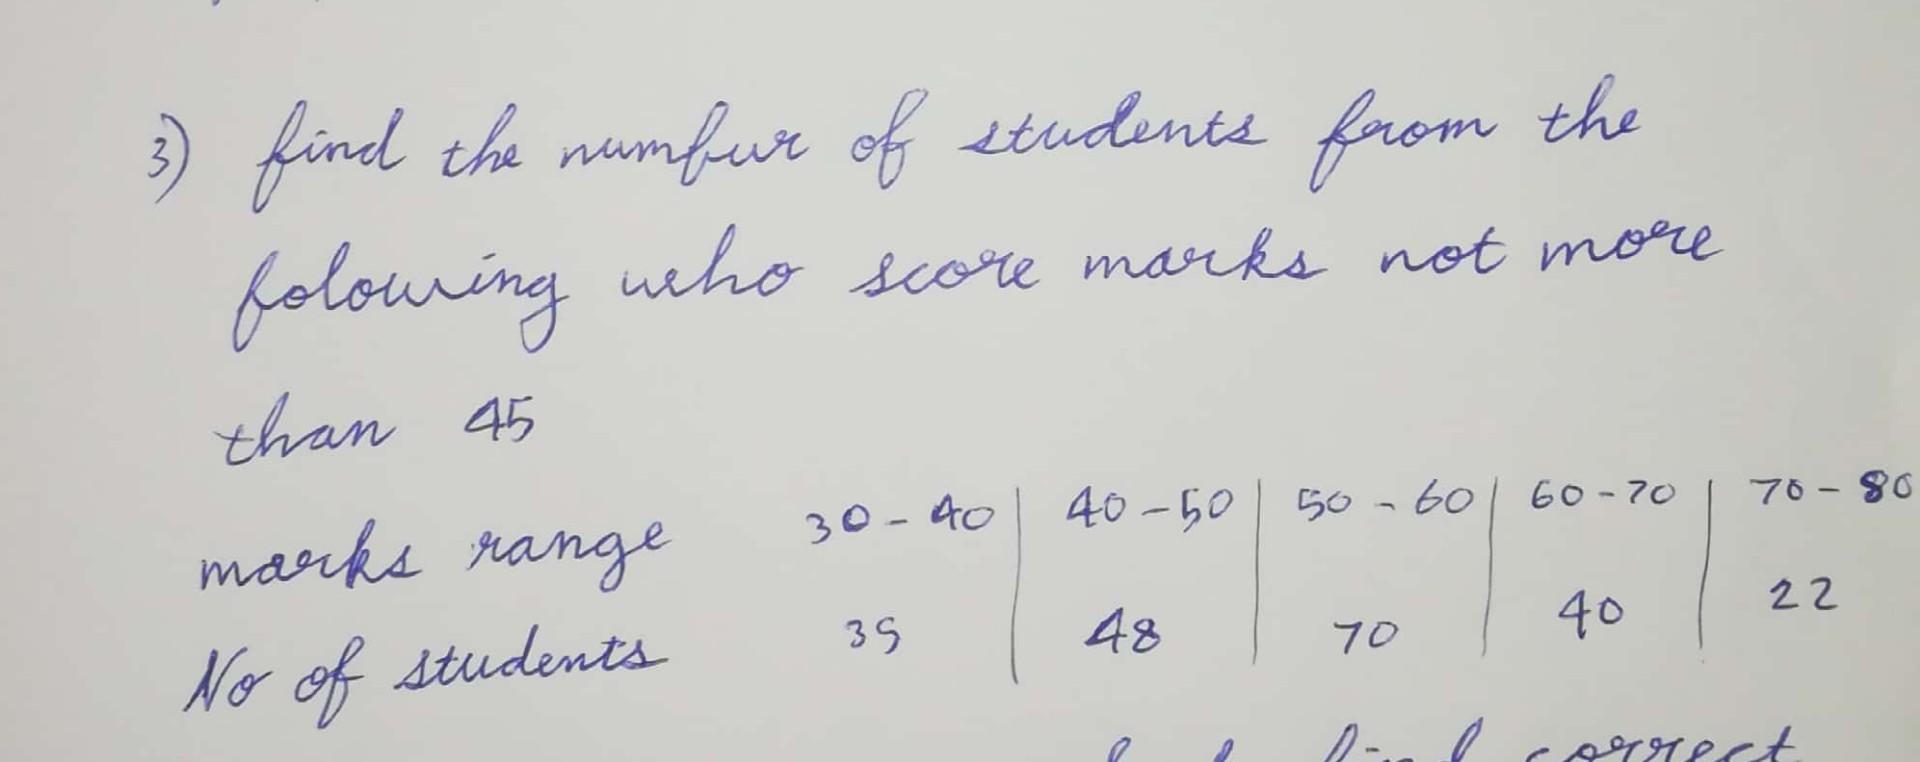 3) find the numbur of students from the
folowing who score marks not more
than 45
marks range 30-40 | 40-50 | 50-60 | 60-70 | 70-80
No of students 35 | 48 | 70 | 40 | 22
find correct